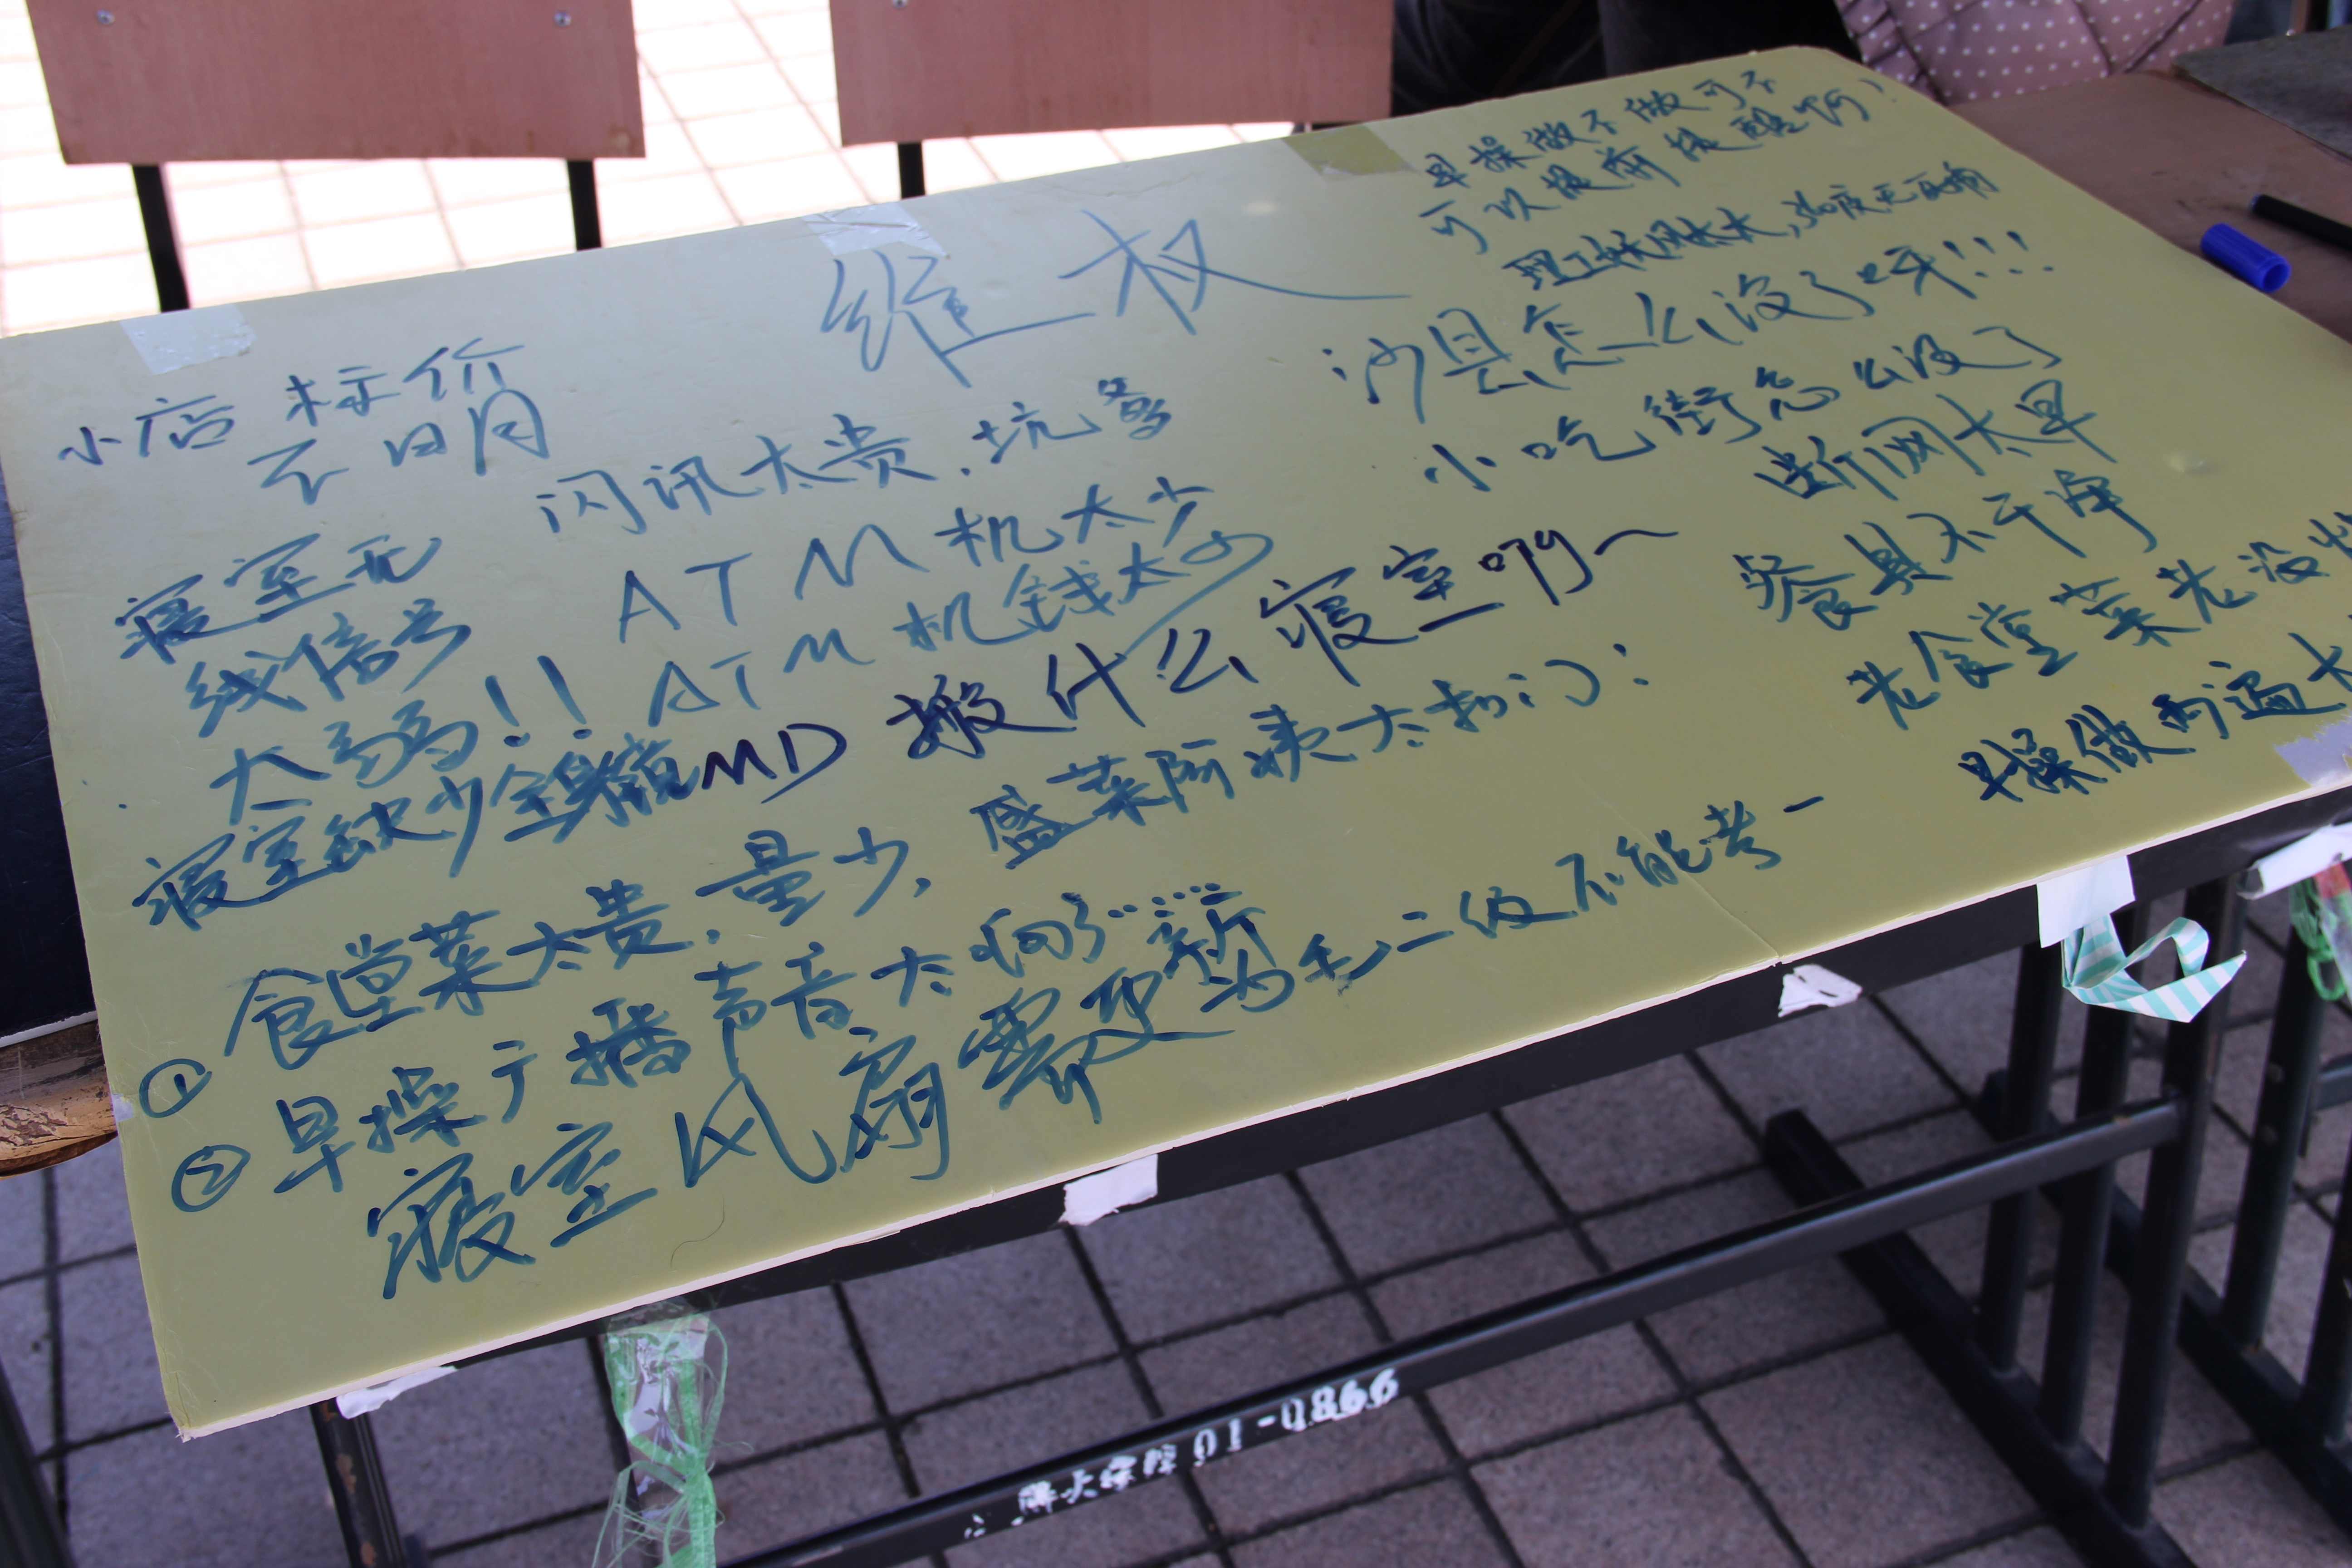 维权
小店标价
不明
闪讯太贵，坑爹
寝室无
线信号
太弱！！
ATM机太少
ATM机钱太少
寝室缺少全身镜
MD 搬什么寝室啊～
① 食堂菜太贵，量少，盛菜阿姨太抠门：
② 早操广播声音太响了……
寝室风扇需要更新
为毛二级不能考一
早操做不做可不
可以提前提醒啊
沙县怎么没了呀!!!
小吃街怎么没了
断网太早
餐具不干净
老食堂菜老没
早操做两遍太
01-0866